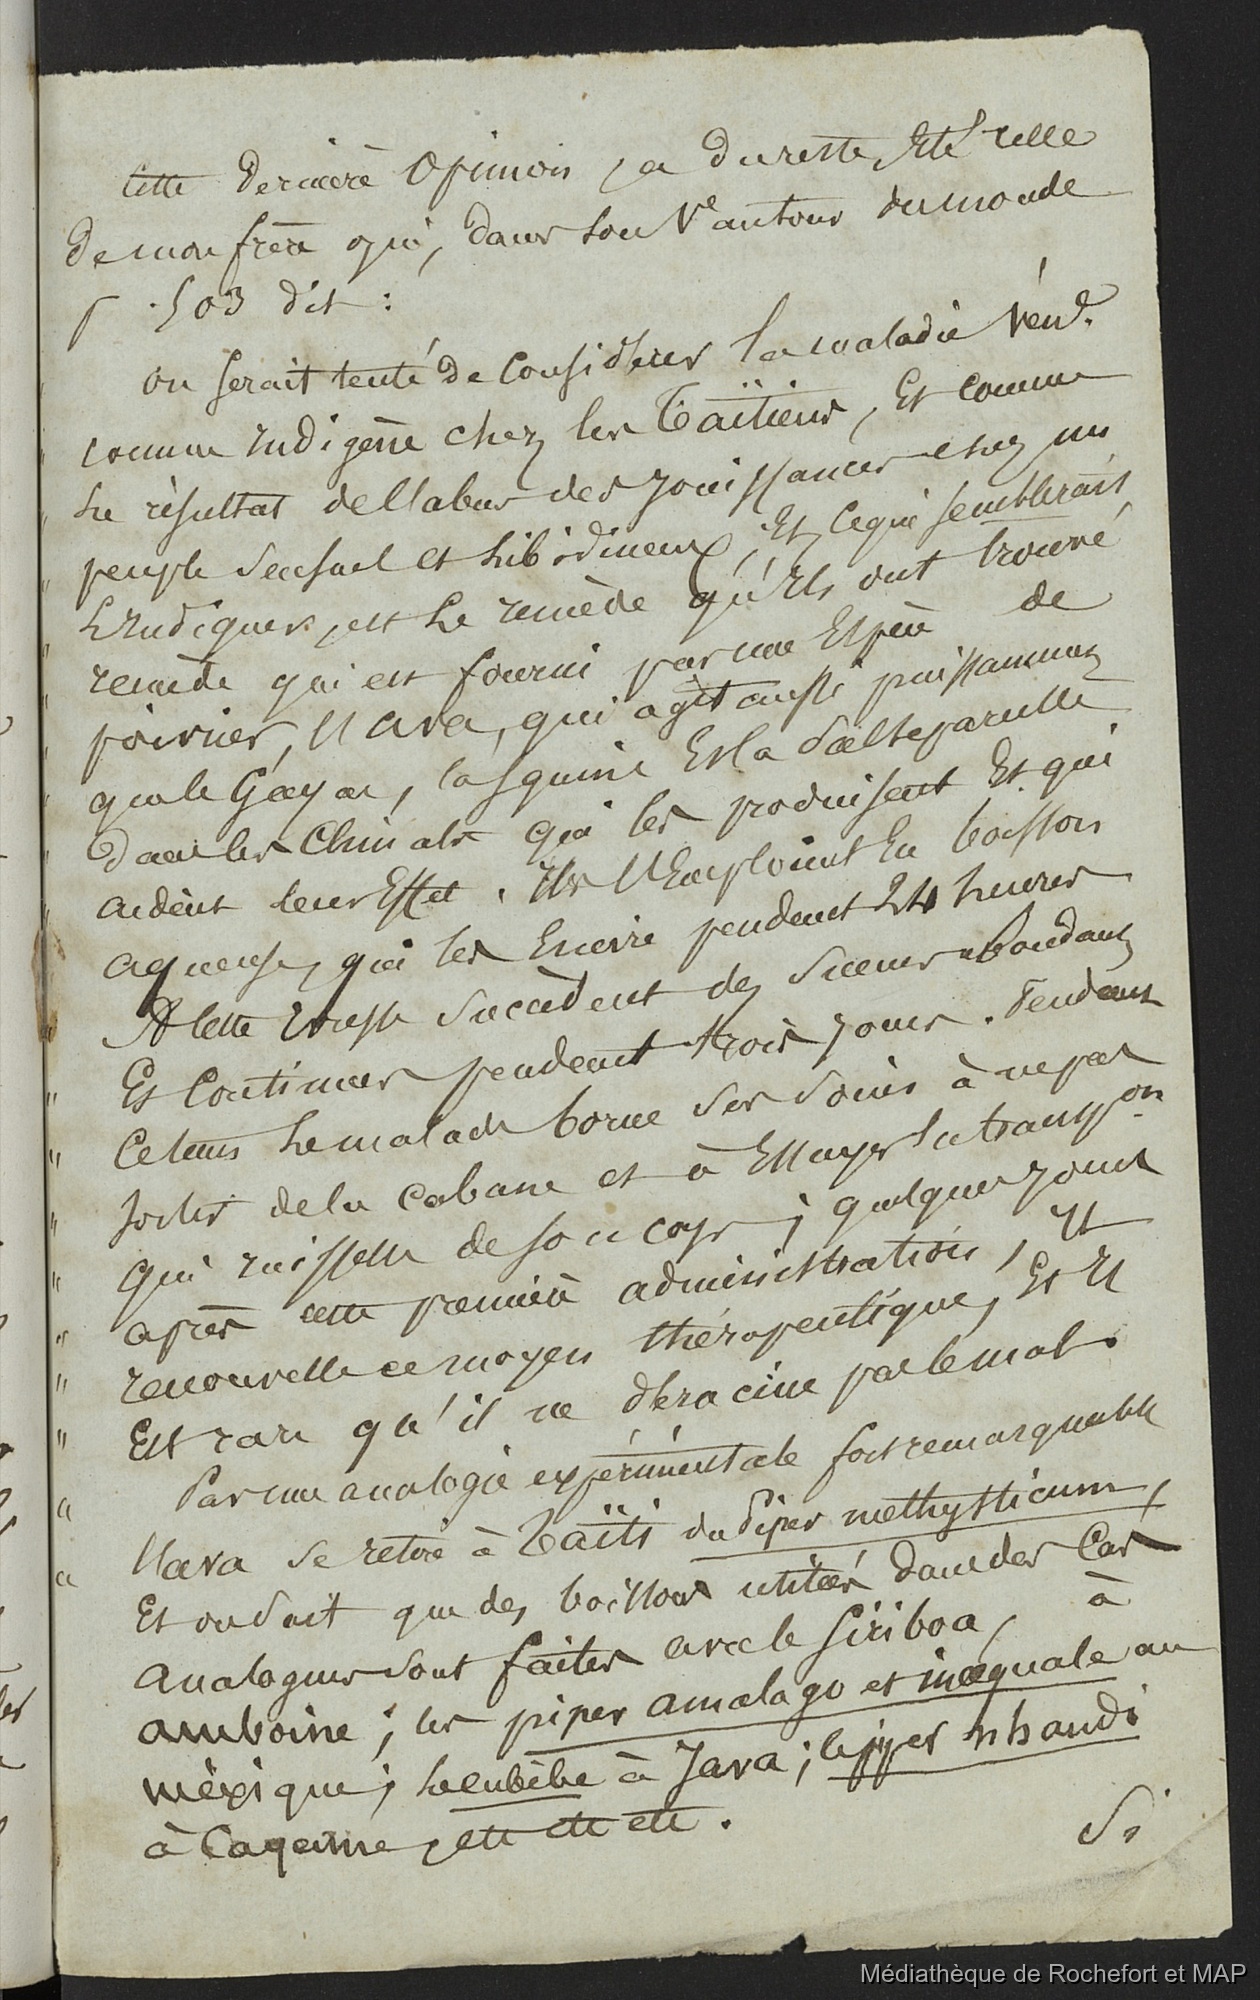 Cette dernière opinion, a du reste été celle
de mon frère qui, dans son Ve autour du monde
p. 503 dit :
on serait tenté de considérer la maladie vénd.
comme indigène chez les Taïtiens, Et comme
Le résultat de l'abus des jouissances chez un
peuple sensuel et Libidineux ; Et ce qui semblerait
L'indiquer, est le remède qu'ils ont trouvé
remède qui est fourni par une Espèce de
poivrier, l'ava, qui agit aussi puissamment
que le Gayac, la squine Et la Salsepareille
dans les Climats qui les produisent Et qui
aident leur Effet. Ils l'Emploient En boisson
aqueuse, qui les Enivre pendant 24 heures
A cette ivresse succèdent des sueurs abondantes
Et Continues pendant trois jours. Pendant
Ce tems Le malade borne ses soins à ne pas
sortir de la cabane et à Essuyer la transpon
qui ruisselle de son corps ; quelques jours
après cette première administration, Il
renouvelle ce moyen thérapeutique, Et Il
Est rare qu'il ne déracine pas le mal.
Par une analogie expérimentale fort remarquable
l'ava se retire à Taïti du Piper methysticum,
Et on sait que des boissons utiles dans des Cas
analogues sont faites avec le Siriboa, à
amboine ; les piper amalago et inæquale au
méxique ; Le cubèbe à Java ; le piper nhandi
à Cayenne, etc etc etc.
Si
Médiathèque de Rochefort et MAP